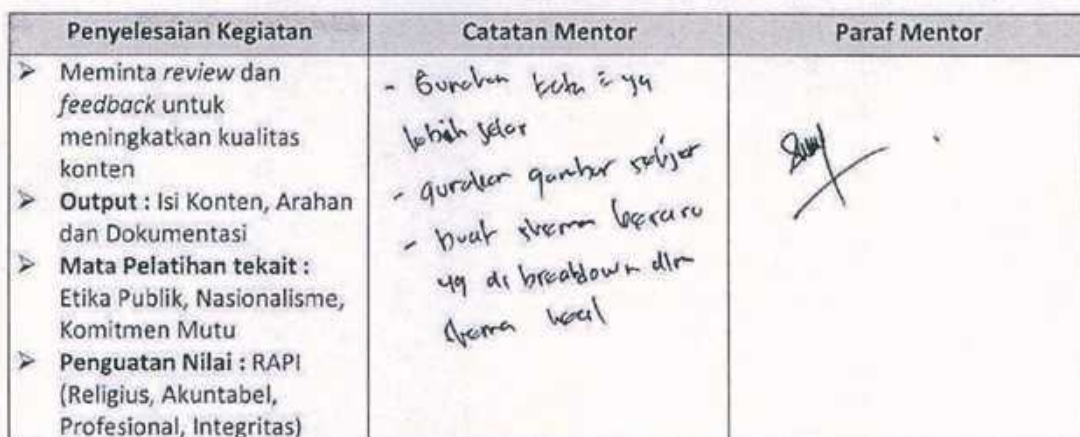 Penyelesaian Kegiatan
Catatan Mentor
Paraf Mentor
➢ Meminta review dan
feedback untuk
meningkatkan kualitas
konten
➢ Output : Isi Konten, Arahan
dan Dokumentasi
➢ Mata Pelatihan tekait :
Etika Publik, Nasionalisme,
Komitmen Mutu
➢ Penguatan Nilai : RAPI
(Religius, Akuntabel,
Profesional, Integritas)
- Gunakan kata = yg
lebih jelas
- gunakan gambar
- buat skema
yg di breakdown dlm
skema kecil